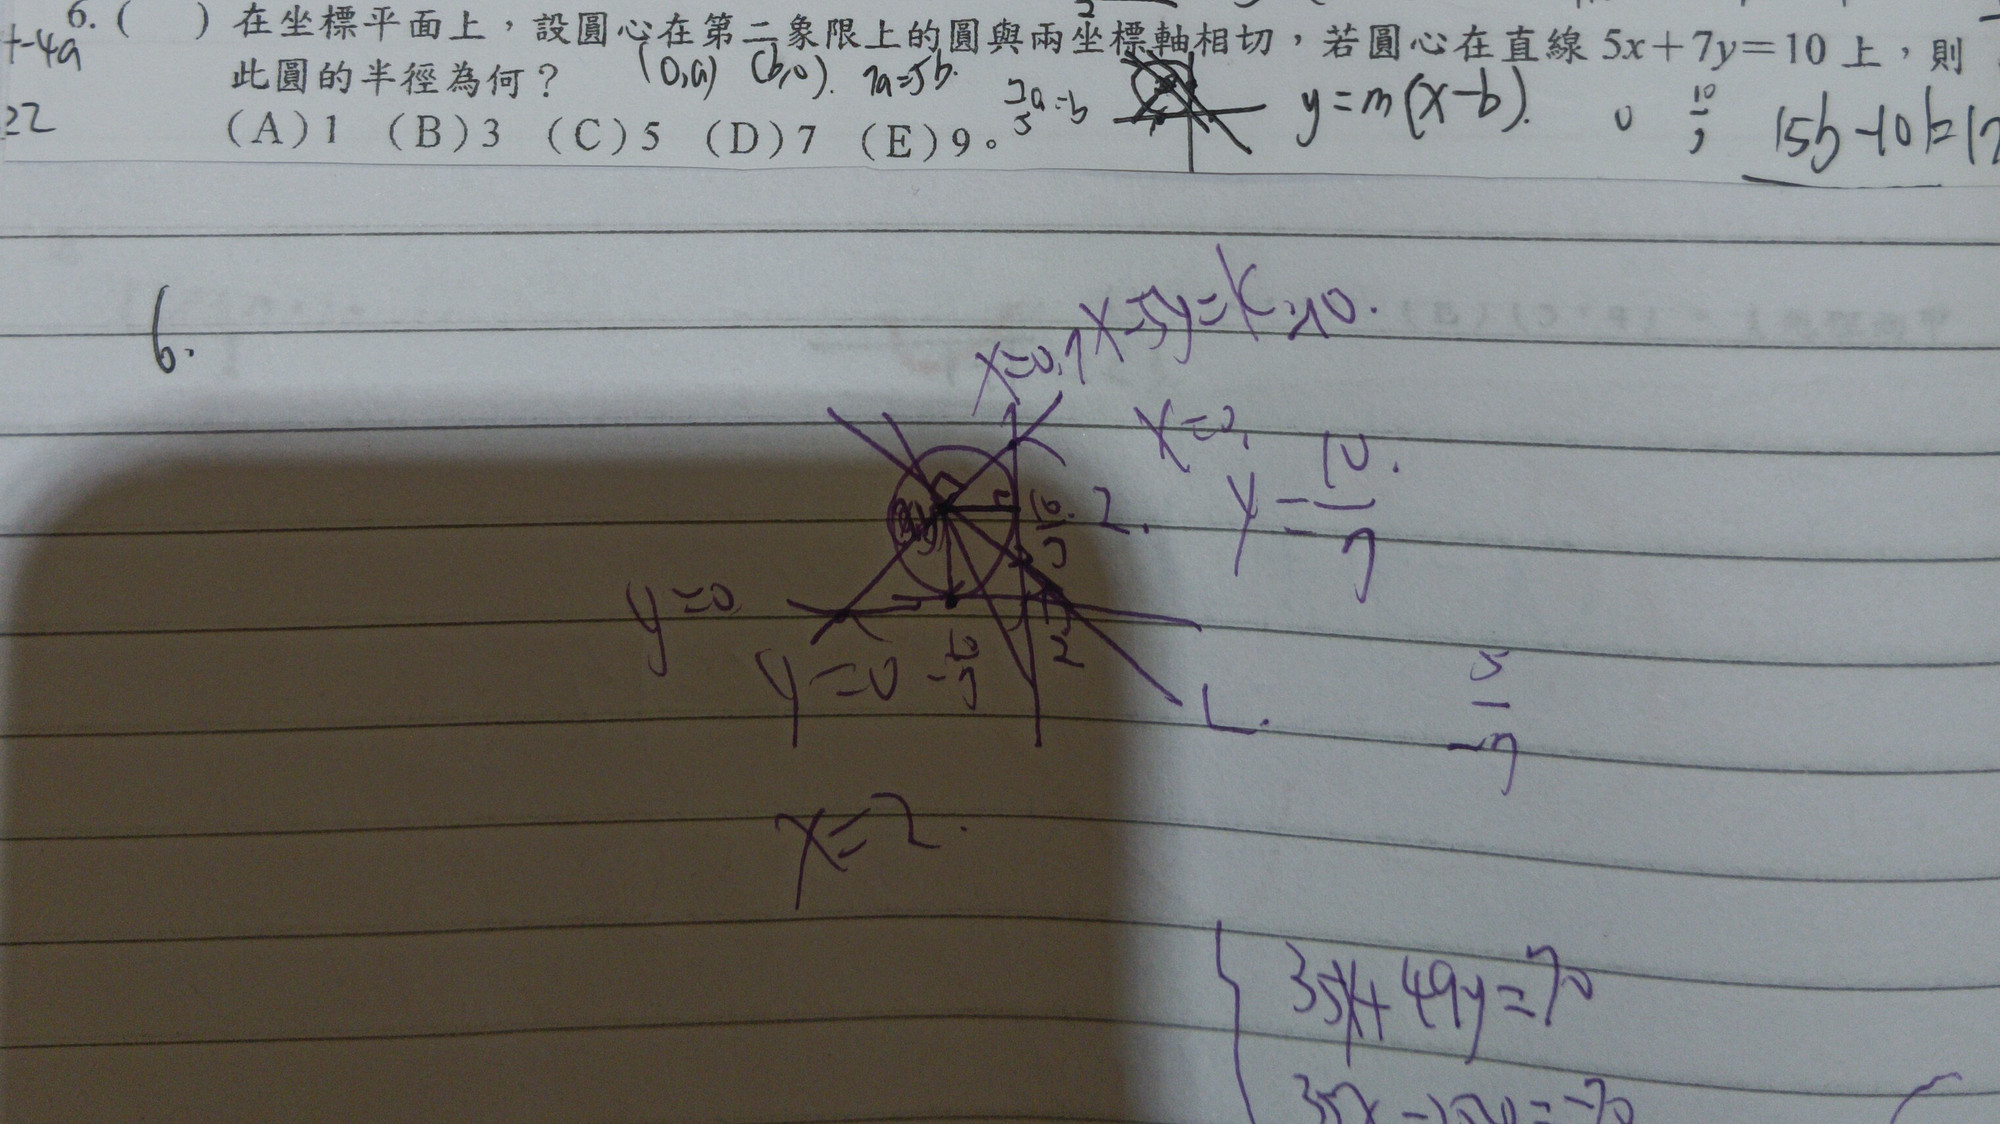 6. (　) 在坐標平面上，設圓心在第二象限上的圓與兩坐標軸相切，若圓心在直線 5x+7y=10 上，則
+-4a
此圓的半徑為何？ (0,a) (b,0). 7a=5b.
22
(A)1 (B)3 (C)5 (D)7 (E)9。 7/5 a=b y=m(x-b). 0 10/7
6.
x=0.
x=0.
y=10/7
10/7 2.
y=0
y=0 -10/7 2
L.
5/-7
x=2.
35x+49y=70